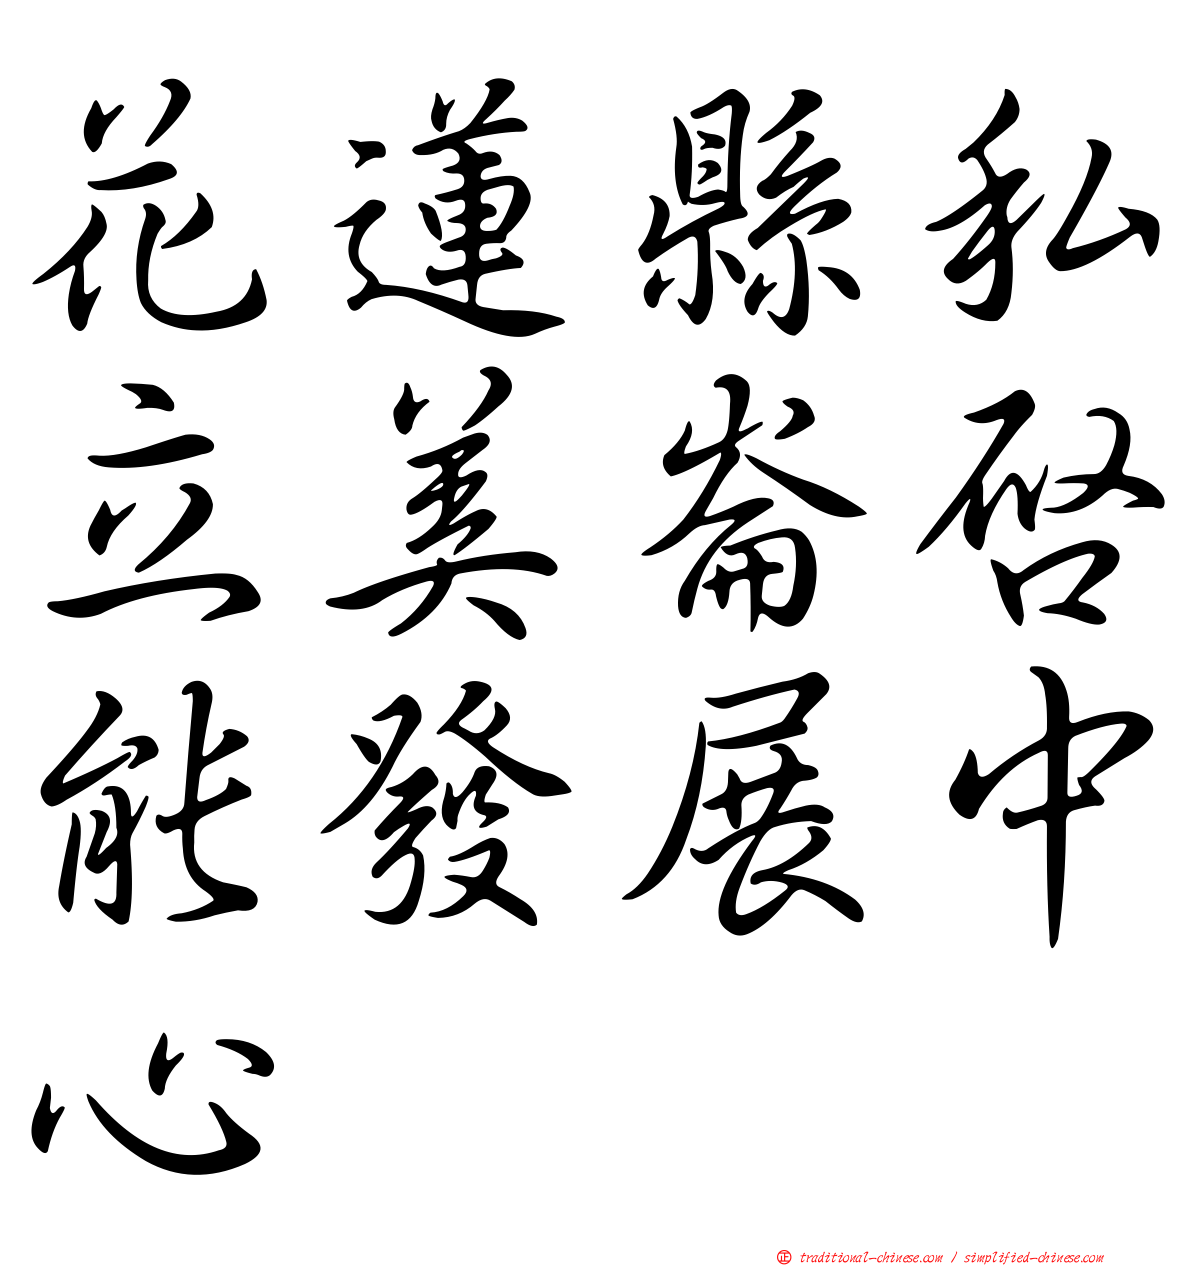 花蓮縣私
立美崙啓
能發展中
心
正 traditional-chinese.com / simplified-chinese.com